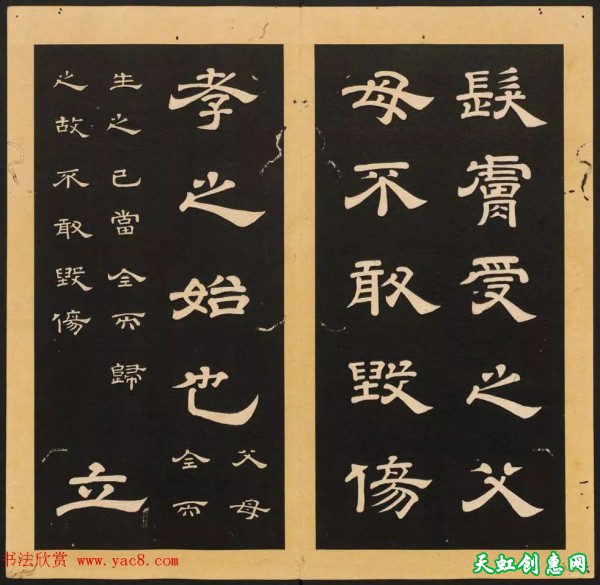 髮膚受之父
母不敢毀傷
孝之始也
父母
全而
生之己當全而歸
之故不敢毀傷
立
书法欣赏 www.yac8.com
天虹创惠网